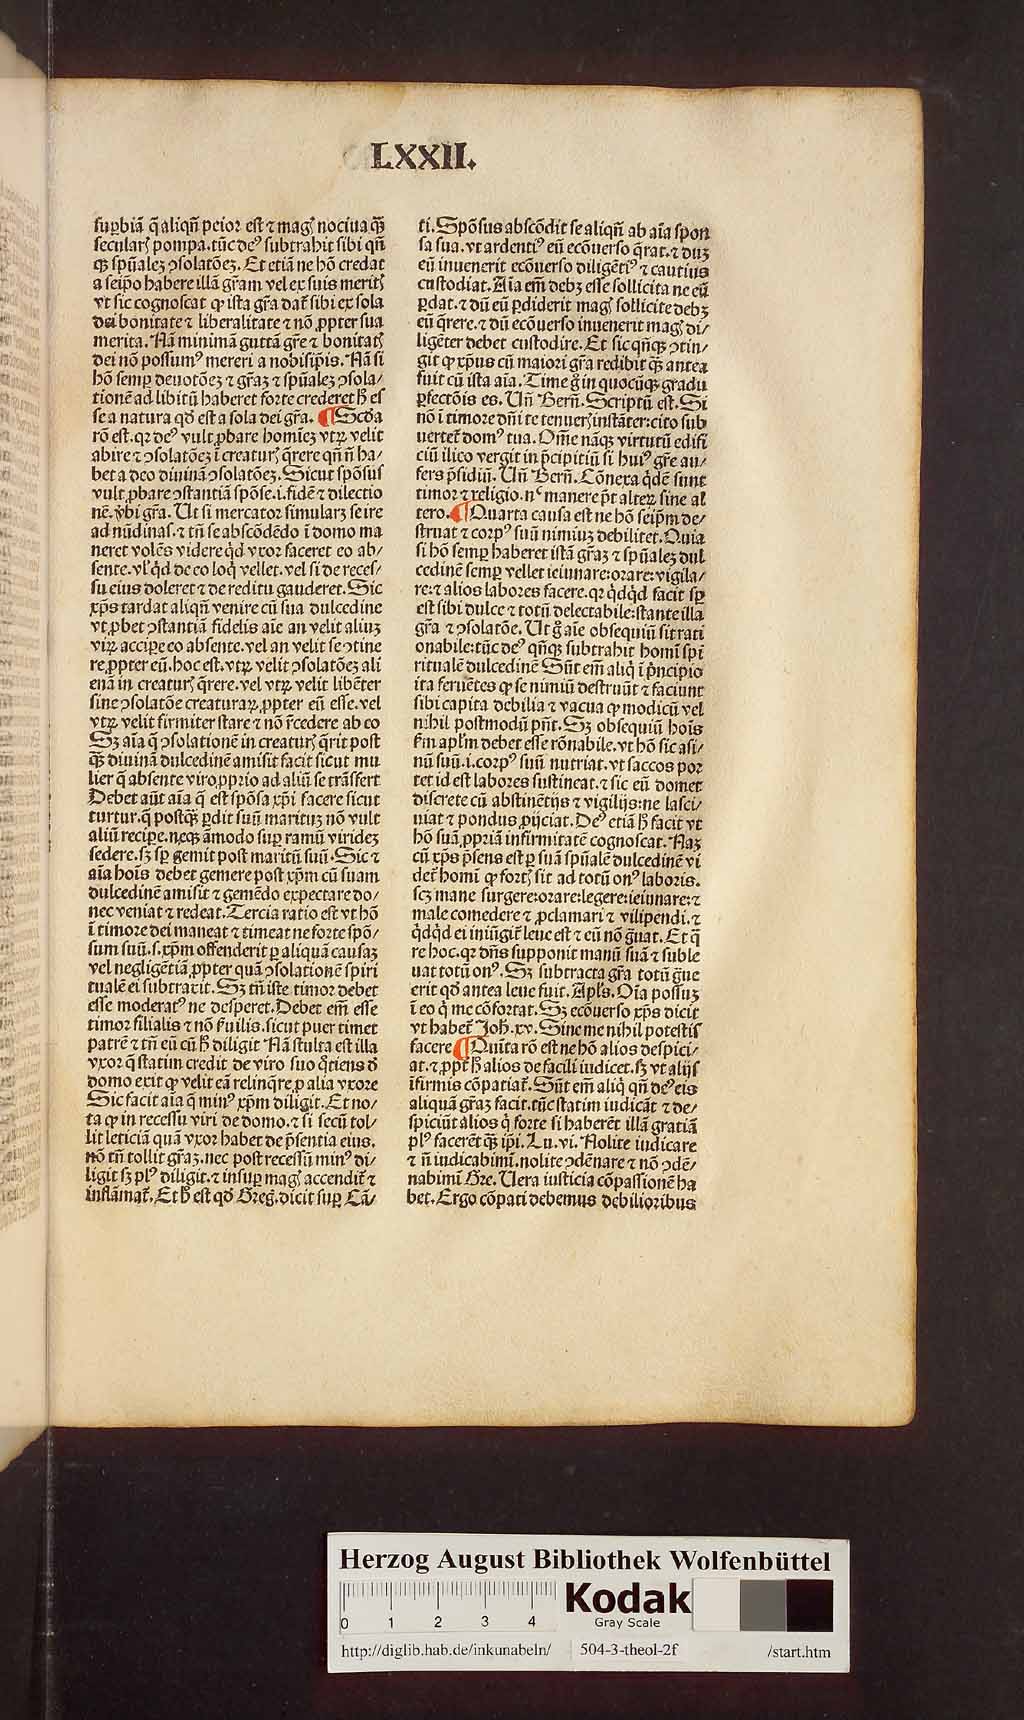 LXXII.
suꝑbiā q̄ aliqn̄ peior est ⁊ magꝭ nociua qᷓꝫ
secularꝭ pompa. tūc deꝰ subtrahit sibi qn̄
qꝫ spūalez ꝯsolatōez. Et etiā ne hō credat
a seip̄o habere illā gr̄am vel ex suis meritꝭ
vt sic cognoscat ꝙ ista gr̄a dat̄ sibi ex sola
dei bonitate ⁊ liberalitate ⁊ nō ꝓpter sua
merita. Nā minimā guttā gr̄e ⁊ bonitatꝭ
dei nō possumꝰ mereri a nobisip̄is. Nā si
hō semꝑ deuotōez ⁊ gr̄az ⁊ spūalez ꝯsola/
tionē ad libitū haberet forte crederet h̄ es
se a natura qd̄ est a sola dei gr̄a. ¶ Scd̄a
rō est. qꝛ deꝰ vult ꝓbare homīez vtꝝ velit
abire ⁊ ꝯsolatōez ī creaturꝭ q̄rere qn̄ n̄ ha/
bet a deo diuinā ꝯsolatōez. Sicut spōsus
vult ꝓbare ꝯstantiā spōse .i. fidē ⁊ dilectio
nē. v̄bi gr̄a. Ut si mercator simularꝫ se ire
ad nūdinas. ⁊ tn̄ se abscōdēdo ī domo ma
neret volēs videre qd̄ vxor faceret eo ab/
sente. vl̓ qd̄ de eo loq̄ vellet. vel si de reces/
su eius doleret ⁊ de reditu gauderet. Sic
xp̄s tardat aliqn̄ venire cū sua dulcedine
vt ꝓbet ꝯstantiā fidelis aīe an velit aliuz
viꝝ accipe eo absente. vel an velit se ꝯtine
re ꝓpter eū. hoc est. vtꝝ velit ꝯsolatōez ali
enā in creaturꝭ q̄rere. vel vtꝝ velit libēter
sine ꝯsolatōe creaturaꝝ ꝓpter eū esse. vel
vtꝝ velit firmiter stare ⁊ nō r̄cedere ab eo
Sꝫ aīa q̄ ꝯsolationē in creaturꝭ q̄rit post
qᷓꝫ diuinā dulcedinē amisit facit sicut mu
lier q̄ absente viro ꝓprio ad aliū se trāsfert
Debet aūt aīa q̄ est spōsa xp̄i facere sicut
turtur. q̄ postqᷓꝫ ꝑdit suū maritu͂z nō vult
aliū recipe. neqꝫ āmodo suꝑ ramū viridez
sedere. sꝫ sꝑ gemit post maritū suū. Sic ⁊
aīa hoīs debet gemere post xp̄m cū suam
dulcedinē amisit ⁊ gemēdo expectare do/
nec veniat ⁊ redeat. Tercia ratio est vt hō
ī timore dei maneat ⁊ timeat ne forte spō/
sum suū .s. xp̄m offenderit ꝑ aliquā causaz
vel negligētiā ꝓpter quā ꝯsolationē spiri
tualē ei subtraxit. Sꝫ tn̄ iste timor debet
esse moderatꝰ ne desperet. Debet em̄ esse
timor filialis ⁊ nō ẜuilis. sicut puer timet
patrē ⁊ tn̄ eū cū h̄ diligit Nā stulta est illa
vxor q̄ statim credit de viro suo qͦtiens d̄
domo exit ꝙ velit eā relinq̄re ꝑ alia vxore
Sic facit aīa q̄ minꝰ xp̄m diligit. Et no/
ta ꝙ in recessu viri de domo. ⁊ si secū tol/
lit leticiā quā vxor habet de p̄sentia eius.
nō tn̄ tollit gr̄az. nec post recessū minꝰ di/
ligit sꝫ plꝰ diligit. ⁊ insuꝑ magꝭ accendit̄ ⁊
inflāmat̄. Et h̄ est qd̄ Greg. dicit suꝑ Cā/
ti. Spōsus abscōdit se aliqn̄ ab aīa spon
sa sua. vt ardentiꝰ eū ecōuerso q̄rat. ⁊ duz
eū inuenerit ecōuerso diligētiꝰ ⁊ cautius
custodiat. Aīa em̄ debꝫ esse sollicita ne eū
ꝑdat. ⁊ dū eū ꝑdiderit magꝭ sollicite debꝫ
eū q̄rere. ⁊ dū ecōuerso inuenerit magꝭ di/
ligēter debet custodire. Et sic qn̄qꝫ ꝯtin/
git ꝙ xp̄us cū maiori gr̄a redibit qᷓꝫ antea
fuit cū ista aīa. Time gͦ in quocūqꝫ gradu
ꝑfectōis es. Un̄ Bern̄. Scriptū est. Si
nō ī timore dn̄i te tenuerꝭ instāter: cito sub
uertet̄ domꝰ tua. Om̄e nāqꝫ virtutū edifi
ciū ilico vergit in p̄cipitiū si huiꝰ gr̄e au/
fers p̄sidiū. Un̄ Bern̄. Cōnexa q̄dē sunt
timor ⁊ religio. nᶜ manere pt̄ alteꝝ sine al
tero. ¶ Quarta causa est ne hō seip̄m de/
struat ⁊ corpꝰ suū nimiuz debilitet. Quia
si hō semꝑ haberet istā gr̄az ⁊ spūalez dul
cedinē semꝑ vellet ieiunare: orare: vigila/
re: ⁊ alios labores facere. qꝛ qͥdqͥd facit sꝑ
est sibi dulce ⁊ totū delectabile: stante illa
gr̄a ⁊ ꝯsolatōe. Ut gͦ aīe obsequiū sit rati
onabile: tūc deꝰ qn̄qꝫ subtrahit homī spi
ritualē dulcedinē Sūt em̄ aliqͥ ī p̄ncipio
ita feruētes ꝙ se nimiū destruūt ⁊ faciunt
sibi capita debilia ⁊ vacua ꝙ modicū vel
nihil postmodū pn̄t. Sꝫ obsequiū hoīs
ẜm apl̓m debet esse rōnabile. vt hō sic asi/
nū suū .i. corpꝰ suū nutriat. vt saccos por
tet id est labores sustineat. ⁊ sic eū domet
discrete cū abstinētijs ⁊ vigilijs: ne lasci/
uiat ⁊ pondus ꝓijciat. Deꝰ etiā h̄ facit vt
hō suā ꝓpriā infirmitatē cognoscat. Naz
cū xp̄s p̄sens est ꝑ suā spūalē dulcedinē vi
det̄ homī ꝙ fortꝭ sit ad totū onꝰ laboris.
scꝫ mane surgere: orare: legere: ieiunare: ⁊
male comedere ⁊ ꝓclamari ⁊ vilipendi. ⁊
qͥdqͥd ei iniūgit̄ leue est ⁊ eū nō g̈uat. Et q̄
re hoc. qꝛ dn̄s supponit manū suā ⁊ suble
uat totū onꝰ. Sꝫ subtracta gr̄a totū g̈ue
erit qd̄ antea leue fuit. Apl̓s. Oīa possuz
ī eo qͥ me cōfortat. Sꝫ ecōuerso xp̄s dicit
vt habet̄ Joh̄. xv. Sine me nihil potestis
facere ¶ Quīta rō est ne hō alios despici/
at. ⁊ ꝓpt̄ h̄ alios de facili iudicet. sꝫ vt alijs
īfirmis cōpatiat̄. Sūt em̄ aliqͥ qn̄ deꝰ eis
aliquā gr̄az facit. tūc statim iudicāt ⁊ de/
spiciūt alios qͥ forte si haberēt illā gratiā
plꝰ facerēt qᷓꝫ ip̄i. Lu. vi. Nolite iudicare
⁊ n̄ iudicabimī. nolite ꝯdēnare ⁊ nō ꝯdē/
nabimī Gre. Uera iusticia cōpassionē ha
bet. Ergo cōpati debemus debilioribus
Herzog August Bibliothek Wolfenbüttel
0 1 2 3 4
Kodak
Gray Scale
http://diglib.hab.de/inkunabeln/ 504-3-theol-2f /start.htm